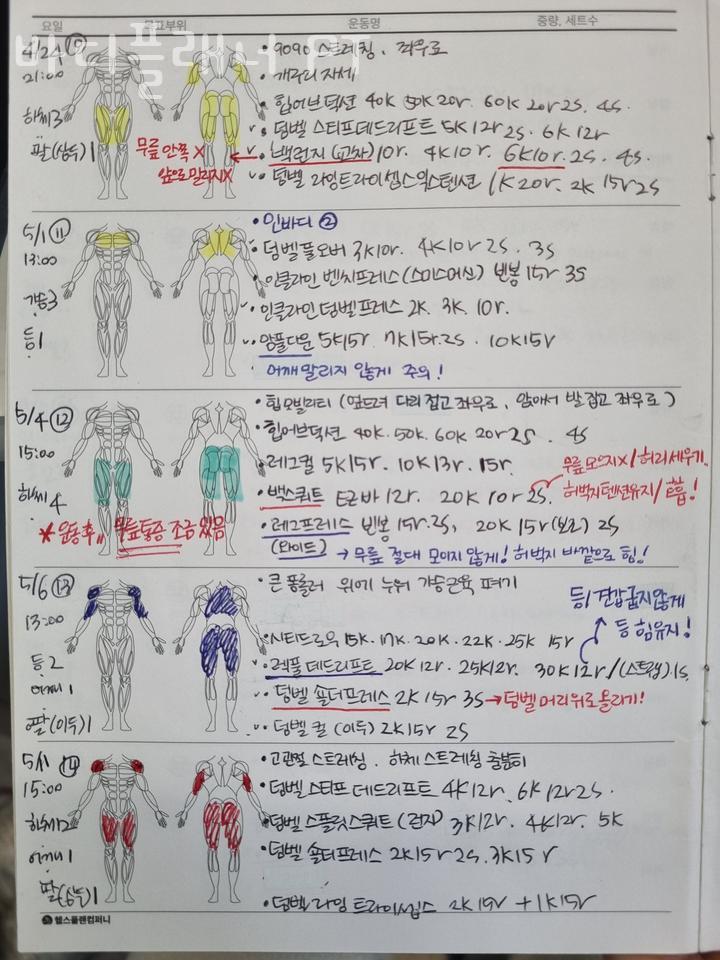 요일 목표부위 운동명 중량, 세트수
바디플래너 PT
4/24 ⑩
21:00
하체3
팔(삼두)1
• 9090 스트레칭, 좌우로
• 개구리 자세
• 힙어브덕션 40K 50K 20r 60K 20r 2S. 4S.
덤벨 스티프데드리프트 5K 12r 2S. 6K 12r
백런지 (교차) 10r. 4K 10r. 6K 10r. 2S. 4S.
무릎 안쪽 X
앞으로 말리지 X
덤벨 라잉트라이셉스익스텐션 1K 20r. 2K 15r 2S
5/1 ⑪
13:00
가슴3
등1
• 인바디 ②
덤벨풀오버 3K 10r. 4K 10r 2S. 3S
인클라인 벤치프레스 (스미스머신) 빈봉 15r 3S
인클라인 덤벨프레스 2K. 3K. 10r.
암풀다운 5K 15r. 7K 15r. 2S. 10K 15r
어깨 말리지 않게 주의!
5/4 ⑫
15:00
하체4
• 힙모빌리티 (엎드려 다리 접고 좌우로, 앉아서 발 잡고 좌우로)
• 힙어브덕션 40K. 50K. 60K 20r 2S. 4S
레그컬 5K 15r. 10K 13r. 15r.
무릎 모으지 X / 허리 세우기.
백스쿼트 EZ바 12r. 20K 10r 2S.
허벅지 텐션유지 / 호흡!
* 운동 후 무릎통증 조금 있음
레그프레스 빈봉 15r. 2S, 20K 15r (보조) 2S
(와이드) → 무릎 절대 모이지 않게! 허벅지 바깥으로 힘!
5/6 ⑬
13:00
등2
어깨1
팔(이두)1
• 큰 폼롤러 위에 누워 가슴근육 펴기
등 견갑 굽지 않게
등 힘유지!
시티드로우 15K. 17K. 20K. 22K. 25K 15r
랙풀 데드리프트 20K 12r. 25K 12r. 30K 12r / (스트랩) 1S.
덤벨 숄더프레스 2K 15r 3S → 덤벨 머리위로 올리기!
덤벨 컬 (이두) 2K 15r 2S
⑭
15:00
하체2
어깨1
팔(삼두)1
• 고관절 스트레칭. 하체 스트레칭 충분히
덤벨 스티프 데드리프트 4K 12r. 6K 12r 2S.
덤벨 스플릿 스쿼트 (런지) 3K 12r. 4K 12r. 5K
덤벨 숄더프레스 2K 15r 2S. 3K 15r
• 덤벨 라잉 트라이셉스 2K 15r + 1K 15r
헬스플랜컴퍼니